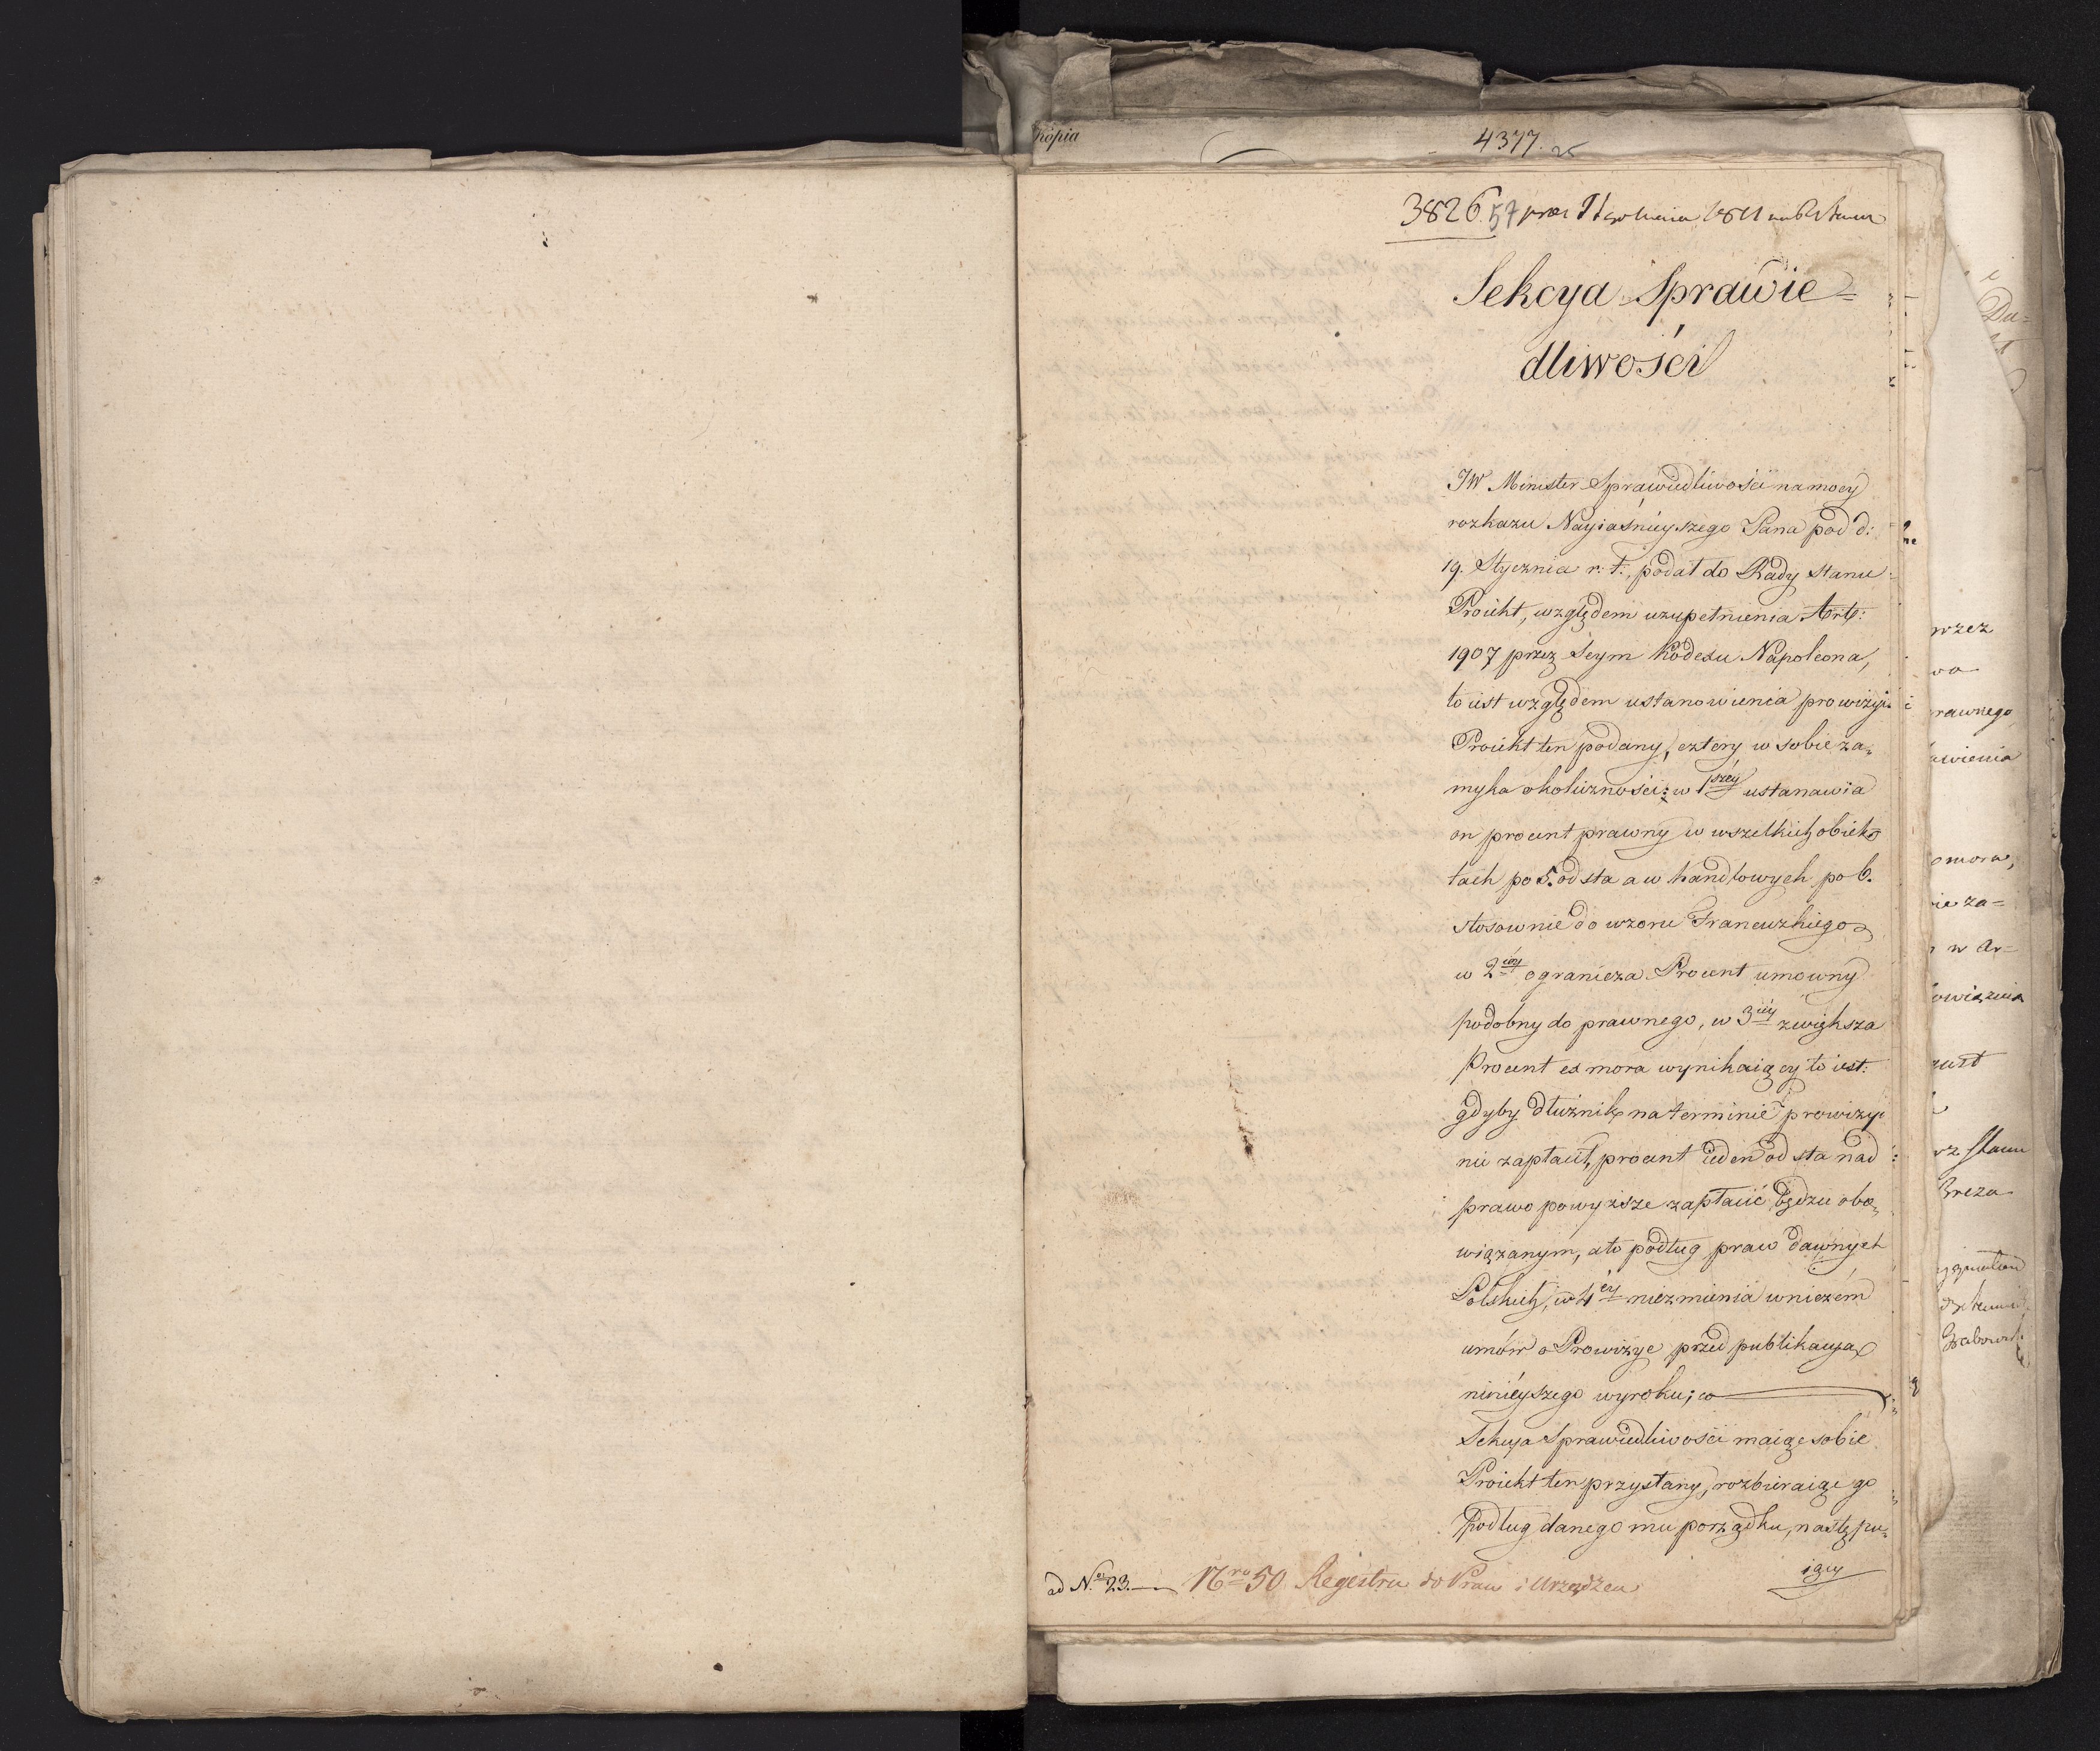 Kopia
4377.
3826. 57 1811
Sekcya Sprawie=
dliwości
JW Minister Sprawiedliwości na mocy
rozkazu Nayiaśnieyszego Pana pod d:
19. Stycznia r: t:, podał do Rady Stanu
Proiekt, względem uzupełnienia Art:
1907 przez Seym Kodexu Napoleona,
to iest względem ustanowienia prowizyi.
Proiekt ten podany, cztery w sobie za=
myka okoliczności: w 1széy ustanawia
on procent prawny w wszelkich obiek=
tach po 5. od sta a w handlowych po 6.
stosownie do wzoru Francuzkiego
w 2éy ogranicza Procent umowny
podobny do prawnego, w 3éy zwiększa
Procent ex mora wynikaiący to iest:
gdyby dłużnik na terminie prowizyi
nie zapłacił, procent ieden od sta nad
prawo powyższe zapłacić będzie obo=
wiązanym, a to podług praw dawnych
Polskich, w 4éy niezmienia wniczém
umów o Prowizye przed publikacyą
ninieyszego wyroku; co
Sekcya Sprawiedliwości maiąc sobie
Proiekt ten przysłany, rozbieraiąc go
podług danego mu porządku, następu=
iący
ad No 23. Nro 50 Regestru do Praw i Urządzeń
Du=
wzez
wa
rawnego
wienia
omora,
ie za=
w Ar=
owiązuia
Stanu
Breza
Grabowski